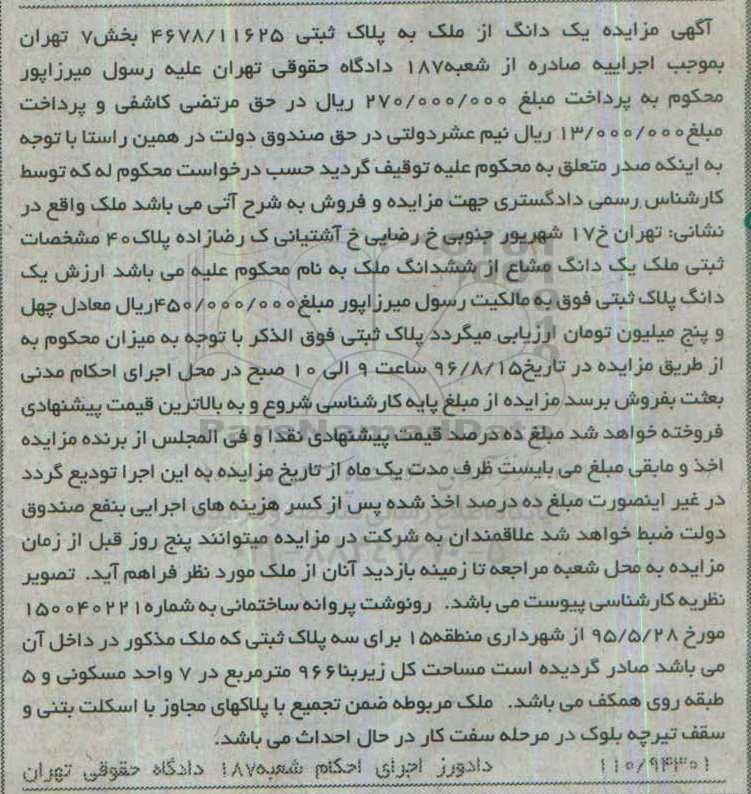 آگهی مزایده یک دانگ از ملک به پلاک ثبتی ۴۶۷۸/۱۱۶۲۵ بخش۷ تهران
بموجب اجراییه صادره از شعبه۱۸۷ دادگاه حقوقی تهران علیه رسول میرزاپور
محکوم به پرداخت مبلغ ۲۷۰/۰۰۰/۰۰۰ ریال در حق مرتضی کاشفی و پرداخت
مبلغ۱۳/۰۰۰/۰۰۰ ریال نیم عشردولتی در حق صندوق دولت در همین راستا با توجه
به اینکه صدر متعلق به محکوم علیه توقیف گردید حسب درخواست محکوم له که توسط
کارشناس رسمی دادگستری جهت مزایده و فروش به شرح آتی می باشد ملک واقع در
نشانی: تهران خ۱۷ شهریور جنوبی خ رضایی خ آشتیانی ک رضازاده پلاک۴۰ مشخصات
ثبتی ملک یک دانگ مشاع از ششدانگ ملک به نام محکوم علیه می باشد ارزش یک
دانگ پلاک ثبتی فوق به مالکیت رسول میرزاپور مبلغ۴۵۰/۰۰۰/۰۰۰ریال معادل چهل
و پنج میلیون تومان ارزیابی میگردد پلاک ثبتی فوق الذکر با توجه به میزان محکوم به
از طریق مزایده در تاریخ۹۶/۸/۱۵ ساعت ۹ الی ۱۰ صبح در محل اجرای احکام مدنی
بعثت بفروش برسد مزایده از مبلغ پایه کارشناسی شروع و به بالاترین قیمت پیشنهادی
فروخته خواهد شد مبلغ ده درصد قیمت پیشنهادی نقدا و فی المجلس از برنده مزایده
اخذ و مابقی مبلغ می بایست ظرف مدت یک ماه از تاریخ مزایده به این اجرا تودیع گردد
در غیر اینصورت مبلغ ده درصد اخذ شده پس از کسر هزینه های اجرایی بنفع صندوق
دولت ضبط خواهد شد علاقمندان به شرکت در مزایده میتوانند پنج روز قبل از زمان
مزایده به محل شعبه مراجعه تا زمینه بازدید آنان از ملک مورد نظر فراهم آید. تصویر
نظریه کارشناسی پیوست می باشد. رونوشت پروانه ساختمانی به شماره۱۵۰۰۴۰۲۲۱
مورخ ۹۵/۵/۲۸ از شهرداری منطقه۱۵ برای سه پلاک ثبتی که ملک مذکور در داخل آن
می باشد صادر گردیده است مساحت کل زیربنا۹۶۶ مترمربع در ۷ واحد مسکونی و ۵
طبقه روی همکف می باشد. ملک مربوطه ضمن تجمیع با پلاکهای مجاوز با اسکلت بتنی و
سقف تیرچه بلوک در مرحله سفت کار در حال احداث می باشد.
۱۱۰/۹۴۳۰۱ دادورز اجرای احکام شعبه۱۸۷ دادگاه حقوقی تهران
ParsNamadData